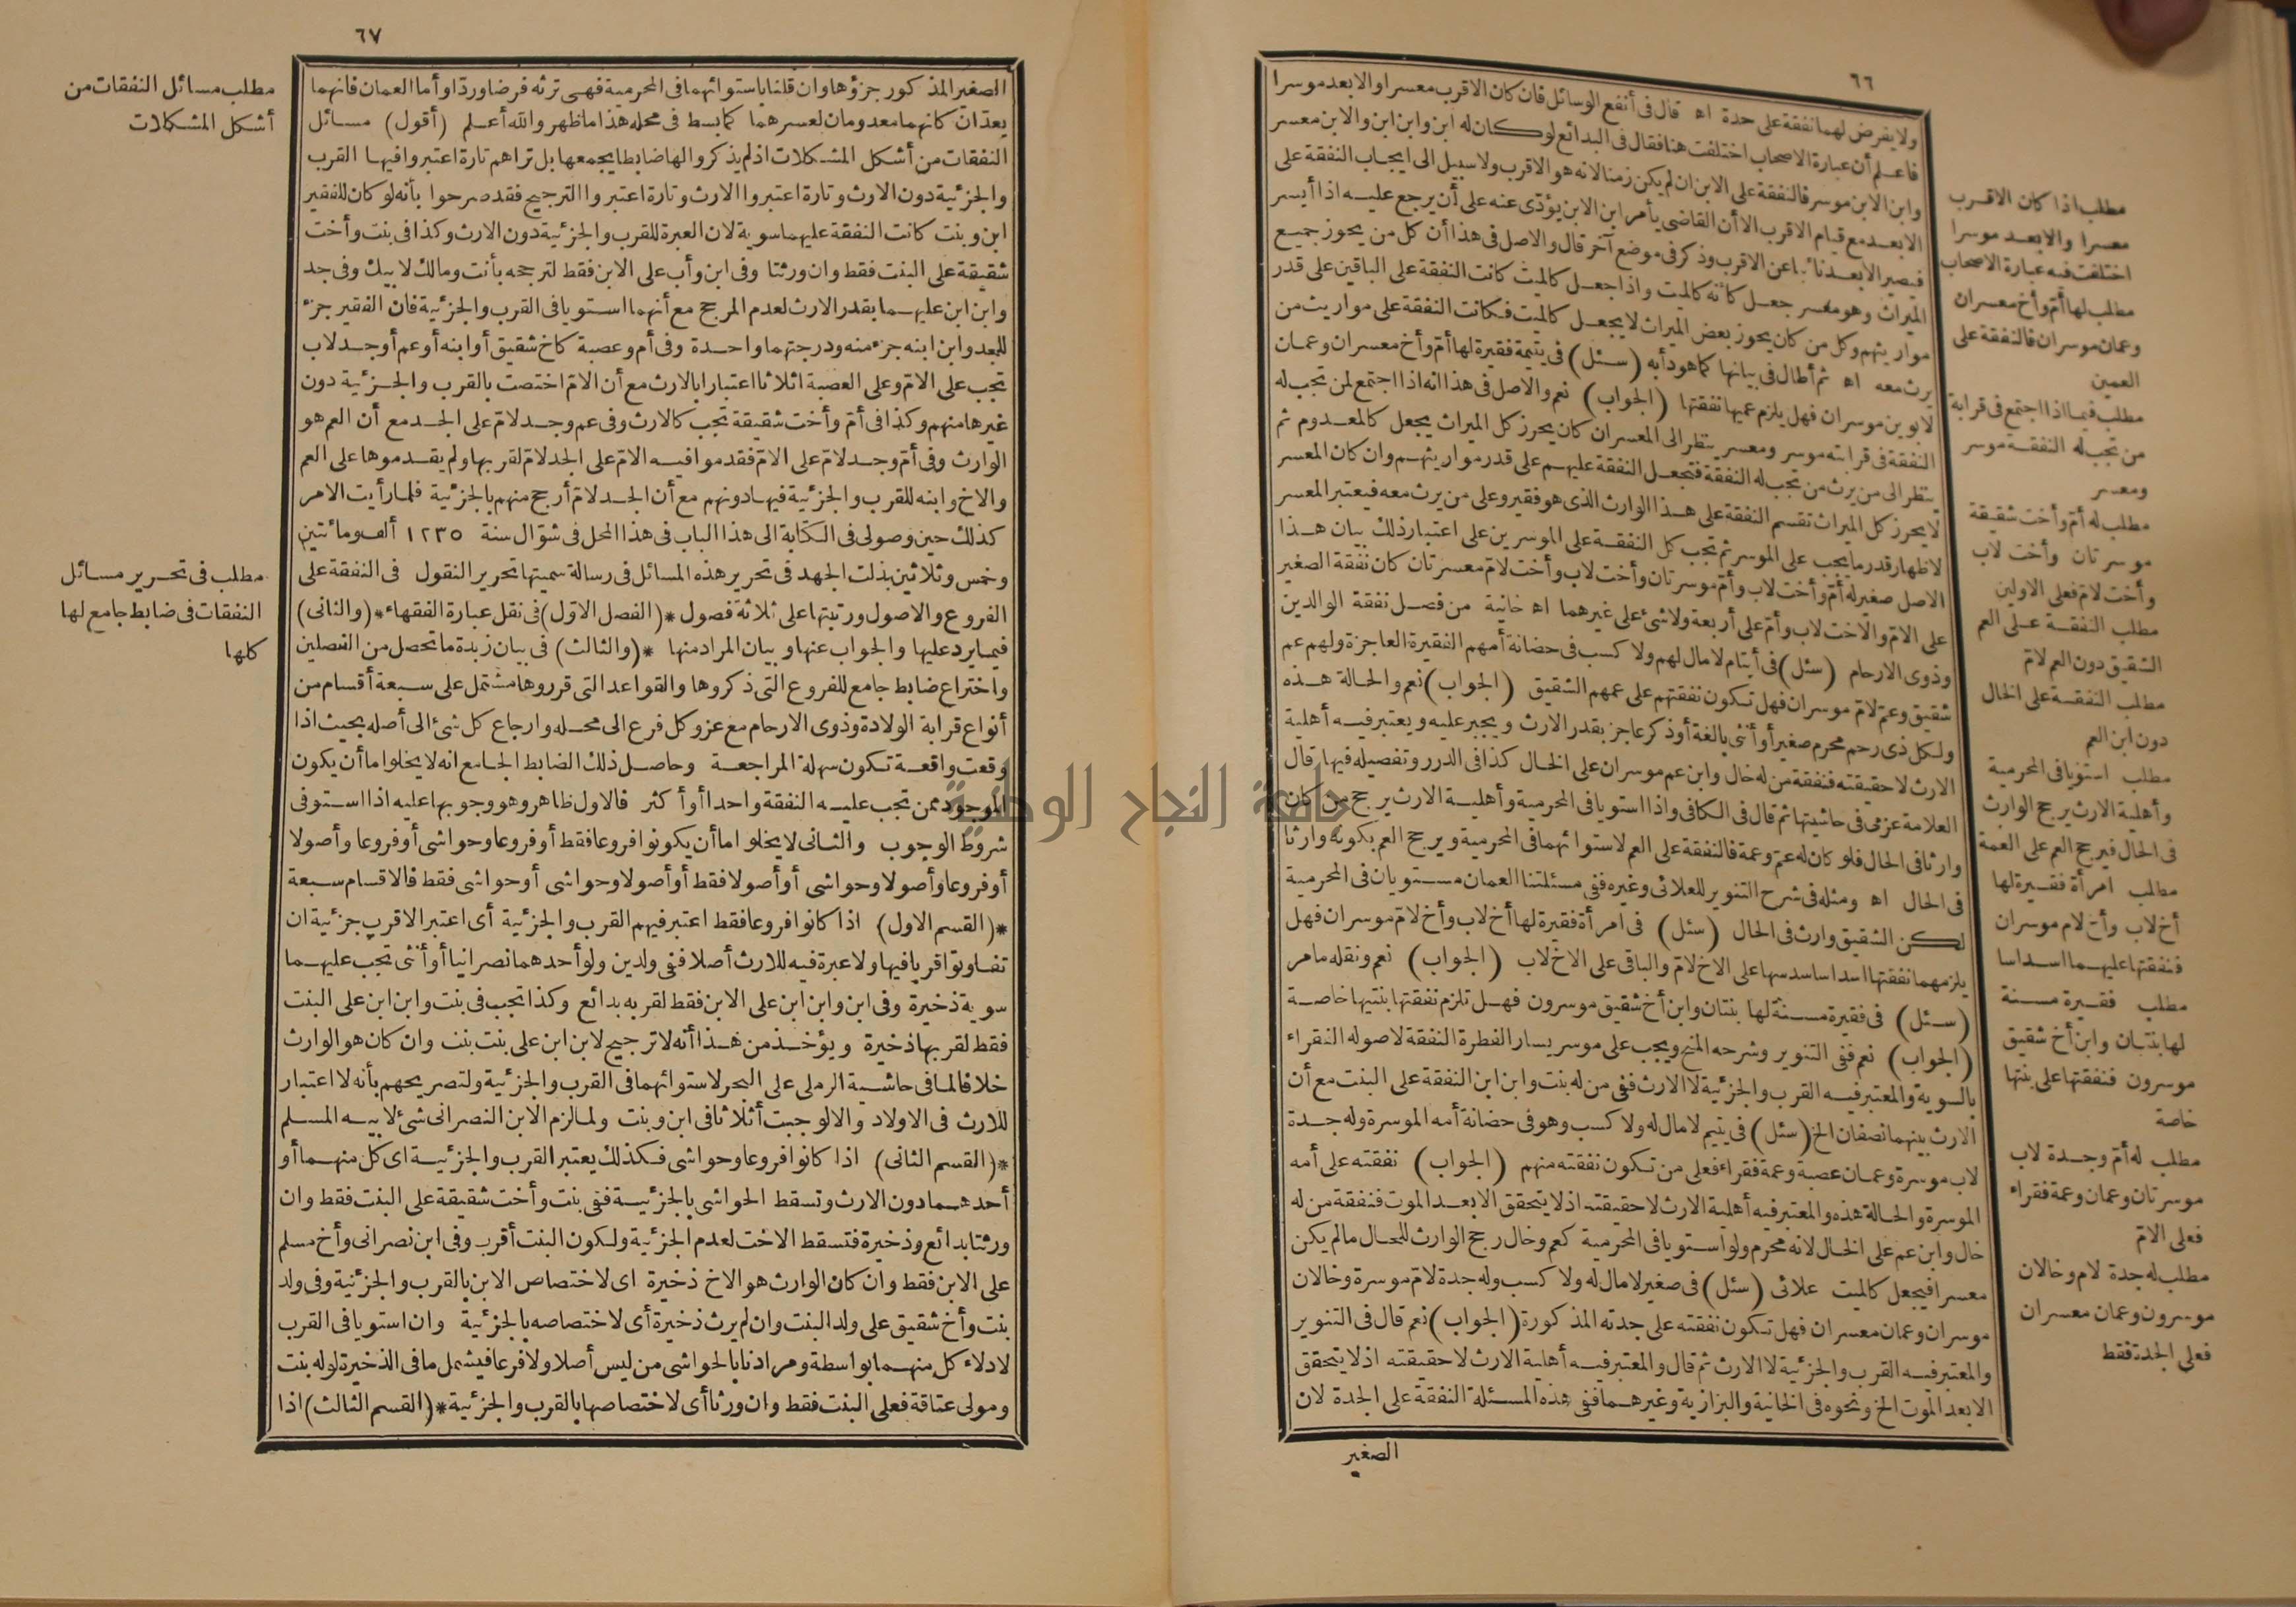 ٦٦
ولا يفرض لهما نفقة على حدة اه قال فى أنفع الوسائل فان كان الاقرب معسرا والابعد موسرا
فاعلم أن عبارة الاصحاب اختلفت هنا فقال فى البدائع لو كان له ابن وابن ابن والابن معسر
وابن الابن موسر فالنفقة على الابن ان لم يكن زمنا لانه هو الاقرب ولا سبيل الى ايجاب النفقة على
الابعد مع قيام الاقرب الا أن القاضى يأمر ابن الابن يؤدى عنه على أن يرجع عليه اذا أيسر
فيصير الابعد نائبا عن الاقرب وذكر فى موضع آخر قال والاصل فى هذا أن كل من يحوز جميع
الميراث وهو معسر جعل كانه كالميت واذا جعل كالميت كانت النفقة على الباقين على قدر
مواريثهم وكل من كان يحوز بعض الميراث لا يجعل كالميت فكانت النفقة على مواريث من
يرث معه اه ثم أطال فى بيانها كما هو دأبه (سئل) فى يتيمة فقيرة لها أمّ وأخ معسران وعمان
لابوين موسران فهل يلزم عميها نفقتها (الجواب) نعم والاصل فى هذا انه اذا اجتمع لمن تجب له
النفقة فى قرابته موسر ومعسر ينظر الى المعسران كان يحرز كل الميراث يجعل كالمعدوم ثم
ينظر الى من يرث من تجب له النفقة فتجعل النفقة عليهم على قدر مواريثهم وان كان المعسر
لا يحرز كل الميراث تقسم النفقة على هذا الوارث الذى هو فقير وعلى من يرث معه فيعتبر المعسر
لاظهار قدر ما يجب على الموسر ثم تجب كل النفقة على الموسرين على اعتبار ذلك بيان هذا
الاصل صغير له أمّ وأخت لاب وأمّ موسرتان وأخت لاب وأخت لامّ معسرتان كان نفقة الصغير
على الامّ والاخت لاب وأمّ على أربعة ولا شئ على غيرهما اه خانية من فصل نفقة الوالدين
وذوى الارحام (سئل) فى أيتام لا مال لهم ولا كسب فى حضانة أمهم الفقيرة العاجزة ولهم عم
شقيق وعم لامّ موسران فهل تكون نفقتهم على عمهم الشقيق (الجواب) نعم والحالة هذه
ولكل ذى رحم محرم صغير أو أنثى بالغة أو ذكر عاجز بقدر الارث ويجبر عليه ويعتبر فيه أهلية
الارث لا حقيقته فنفقة من له خال وابن عم موسران على الخال كذا فى الدرر وتفصيله فيها قال
العلامة عزمى فى حاشيتها ثم قال فى الكافى واذا استويا فى المحرمية وأهلية الارث يرجح من كان
وارثا فى الحال فلو كان له عمّ وعمة فالنفقة على العم لاستوائهما فى المحرمية ويرجح العم بكونه وارثا
فى الحال اه ومثله فى شرح التنوير للعلائى وغيره ففى مسئلتنا العمان مستويان فى المحرمية
لكن الشقيق وارث فى الحال (سئل) فى امرأة فقيرة لها أخ لاب وأخ لامّ موسران فهل
يلزمهما نفقتها اسداسا سدسها على الاخ لامّ والباقى على الاخ لاب (الجواب) نعم ونقله ما مر
(سئل) فى فقيرة مسنة لها بنتان وابن أخ شقيق موسرون فهل تلزم نفقتها بنتيها خاصة
(الجواب) نعم ففى التنوير وشرحه المنح ويجب على موسر يسار الفطرة النفقة لاصوله الفقراء
بالسوية والمعتبر فيه القرب والجزئية لا الارث ففى من له بنت وابن ابن النفقة على البنت مع أن
الارث بينهما نصفان الخ (سئل) فى يتيم لا مال له ولا كسب وهو فى حضانة أمه الموسرة وله جدة
لاب موسرة وعمان عصبة وعمة فقراء فعلى من تكون نفقته منهم (الجواب) نفقته على أمه
الموسرة والحالة هذه والمعتبر فيه أهلية الارث لا حقيقته اذ لا يتحقق الا بعد الموت فنفقة من له
خال وابن عم على الخال لانه محرم ولو استويا فى المحرمية كعم وخال رجح الوارث للحال ما لم يكن
معسرا فيجعل كالميت علائى (سئل) فى صغير لا مال له ولا كسب وله جدة لامّ موسرة وخالان
موسران وعمان معسران فهل تكون نفقته على جدته المذكورة (الجواب) نعم قال فى التنوير
والمعتبر فيه القرب والجزئية لا الارث ثم قال والمعتبر فيه أهلية الارث لا حقيقته اذ لا يتحقق
الا بعد الموت الخ ونحوه فى الخانية والبزازية وغيرهما ففى هذه المسئلة النفقة على الجدة لان
الصغير
مطلب اذا كان الاقرب
معسرا والابعد موسرا
اختلفت فيه عبارة الاصحاب
مطلب لها أمّ وأخ معسران
وعمان موسران فالنفقة على
العمين
مطلب فيما اذا اجتمع فى قرابة
من تجب له النفقة موسر
ومعسر
مطلب له أمّ وأخت شقيقة
موسرتان وأخت لاب
وأخت لامّ فعلى الاولين
مطلب النفقة على العم
الشقيق دون العم لامّ
مطلب النفقة على الخال
دون ابن العم
مطلب استويا فى المحرمية
وأهلية الارث يرجح الوارث
فى الحال فيرجح العم على العمة
مطلب امرأة فقيرة لها
أخ لاب وأخ لام موسران
فنفقتها عليهما اسداسا
مطلب فقيرة مسنة
لها بنتان وابن أخ شقيق
موسرون فنفقتها على بنتها
خاصة
مطلب له أمّ وجدة لاب
موسرتان وعمان وعمة فقراء
فعلى الامّ
مطلب له جدة لام وخالان
موسرون وعمان معسران
فعلى الجدة فقط
٦٧
الصغير المذكور جزؤها وان قلنا باستوائهما فى المحرمية فهى ترثه فرضا وردّا وأما العمان فانهما
يعدّان كانهما معدومان لعسرهما كما بسط فى محله هذا ما ظهر والله أعلم (أقول) مسائل
النفقات من أشكل المشكلات اذ لم يذكروا لها ضابطا يجمعها بل تراهم تارة اعتبروا فيها القرب
والجزئية دون الارث وتارة اعتبروا الارث وتارة اعتبروا الترجيح فقد صرحوا بأنه لو كان للفقير
ابن وبنت كانت النفقة عليهما سوية لان العبرة للقرب والجزئية دون الارث وكذا فى بنت وأخت
شقيقة على البنت فقط وان ورثتا وفى ابن وأب على الابن فقط لترجحه بأنت ومالك لابيك وفى جد
وابن ابن عليهما بقدر الارث لعدم المرجح مع أنهما استويا فى القرب والجزئية فان الفقير جزء
للجد وابن ابنه جزء منه ودرجتهما واحدة وفى أم وعصبة كاخ شقيق أو ابنه أو عم أو جد لاب
تجب على الامّ وعلى العصبة اثلاثا اعتبارا بالارث مع أن الامّ اختصت بالقرب والجزئية دون
غيرها منهم وكذا فى أمّ وأخت شقيقة تجب كالارث وفى عم وجد لامّ على الجد مع أن العم هو
الوارث وفى أمّ وجد لامّ على الامّ فقد موا فيه الامّ على الجد لامّ لقربها ولم يقدموها على العم
والاخ وابنه للقرب والجزئية فيها دونهم مع أن الجد لامّ أرجح منهم بالجزئية فلما رأيت الامر
كذلك حين وصولى فى الكتابة الى هذا الباب فى هذا المحل فى شوّال سنة ١٢٣٥ ألف ومائتين
وخمس وثلاثين بذلت الجهد فى تحرير هذه المسائل فى رسالة سميتها تحرير النقول فى النفقة على
الفروع والاصول ورتبتها على ثلاثة فصول *(الفصل الاوّل) فى نقل عبارة الفقهاء *(والثانى)
فيما يرد عليها والجواب عنها وبيان المراد منها *(والثالث) فى بيان زبدة ما تحصل من الفصلين
واختراع ضابط جامع للفروع التى ذكروها والقواعد التى قرروها مشتمل على سبعة أقسام من
أنواع قرابة الولادة وذوى الارحام مع عزو كل فرع الى محله وارجاع كل شئ الى أصله بحيث اذا
وقعت واقعة تكون سهلة المراجعة وحاصل ذلك الضابط الجامع انه لا يخلو اما أن يكون
الموجود ممن تجب عليه النفقة واحدا أو أكثر فالاول ظاهر وهو وجوبها عليه اذا استوفى
شروط الوجوب والثانى لا يخلو اما أن يكونوا فروعا فقط أو فروعا وحواشى أو فروعا وأصولا
أو فروعا وأصولا وحواشى أو أصولا فقط أو أصولا وحواشى أو حواشى فقط فالاقسام سبعة
*(القسم الاول) اذا كانوا فروعا فقط اعتبر فيهم القرب والجزئية أى اعتبر الاقرب جزئية ان
تفاوتوا قربا فيها ولا عبرة فيه للارث أصلا ففى ولدين ولو أحدهما نصرانيا أو أنثى تجب عليهما
سوية ذخيرة وفى ابن وابن ابن على الابن فقط لقربه بدائع وكذا تجب فى بنت وابن ابن على البنت
فقط لقربها ذخيرة ويؤخذ من هذا أنه لا ترجيح لابن ابن على بنت بنت وان كان هو الوارث
خلافا لما فى حاشية الرملى على البحر لاستوائهما فى القرب والجزئية ولتصريحهم بأنه لا اعتبار
للارث فى الاولاد والا لوجبت أثلاثا فى ابن وبنت ولما لزم الابن النصرانى شئ لابيه المسلم
*(القسم الثانى) اذا كانوا فروعا وحواشى فكذلك يعتبر القرب والجزئية اى كل منهما أو
أحدهما دون الارث وتسقط الحواشى بالجزئية ففى بنت وأخت شقيقة على البنت فقط وان
ورثتا بدائع وذخيرة فتسقط الاخت لعدم الجزئية ولكون البنت أقرب وفى ابن نصرانى وأخ مسلم
على الابن فقط وان كان الوارث هو الاخ ذخيرة اى لاختصاص الابن بالقرب والجزئية وفى ولد
بنت وأخ شقيق على ولد البنت وان لم يرث ذخيرة أى لاختصاصه بالجزئية وان استويا فى القرب
لادلاء كل منهما بواسطة ومرادنا بالحواشى من ليس أصلا ولا فرعا فيشمل ما فى الذخيرة لو له بنت
ومولى عتاقة فعلى البنت فقط وان ورثا أى لاختصاصها بالقرب والجزئية *(القسم الثالث) اذا
مطلب مسائل النفقات من
أشكل المشكلات
مطلب فى تحرير مسائل
النفقات فى ضابط جامع لها
كلها
جامعة النجاح الوطنية